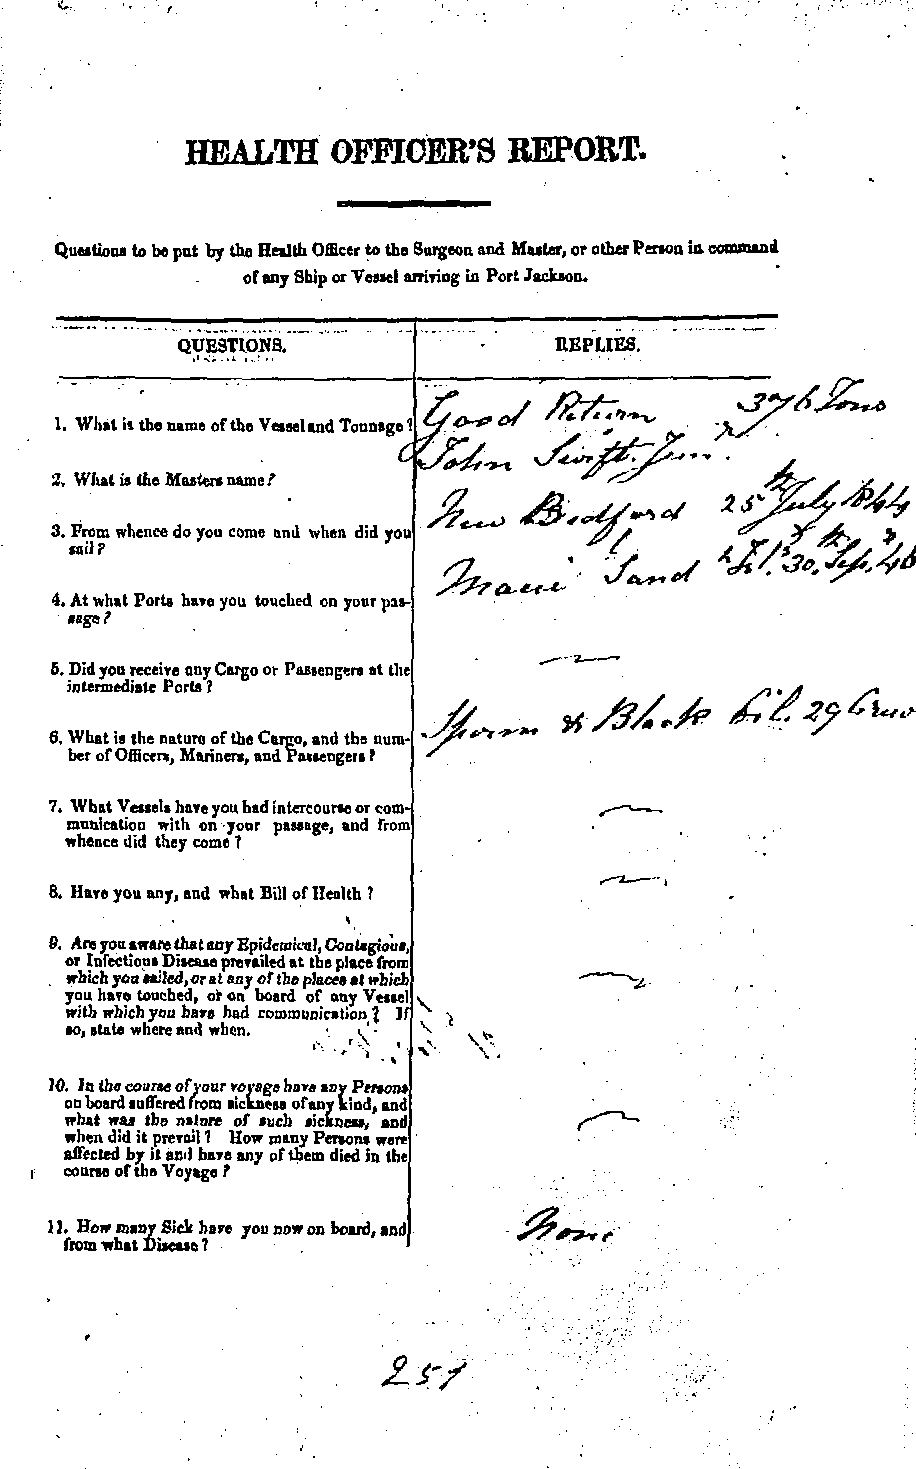 HEALTH OFFICER'S REPORT.
Questions to be put by the Health Officer to the Surgeon and Master, or other Person in command
of any Ship or Vessel arriving in Port Jackson.
QUESTIONS.
REPLIES.
1. What is the name of the Vessel and Tonnage?
Good Return 376 Tons
2. What is the Masters name?
John Swift Junr.
3. From whence do you come and when did you
sail?
New Bedford 25th July 1844
4. At what Ports have you touched on your pas-
sage?
Maui Sand 30th Sep. 46
5. Did you receive any Cargo or Passengers at the
intermediate Ports?
6. What is the nature of the Cargo, and the num-
ber of Officers, Mariners, and Passengers?
Sperm & Black Oil. 29 Crew
7. What Vessels have you had intercourse or com-
munication with on your passage, and from
whence did they come?
8. Have you any, and what Bill of Health?
9. Are you aware that any Epidemical, Contagious,
or Infectious Disease prevailed at the place from
which you sailed, or at any of the places at which
you have touched, or on board of any Vessel
with which you have had communication? If
so, state where and when.
10. In the course of your voyage have any Persons
on board suffered from sickness of any kind, and
what was the nature of such sickness, and
when did it prevail? How many Persons were
affected by it and have any of them died in the
course of the Voyage?
11. How many Sick have you now on board, and
from what Disease?
None
251